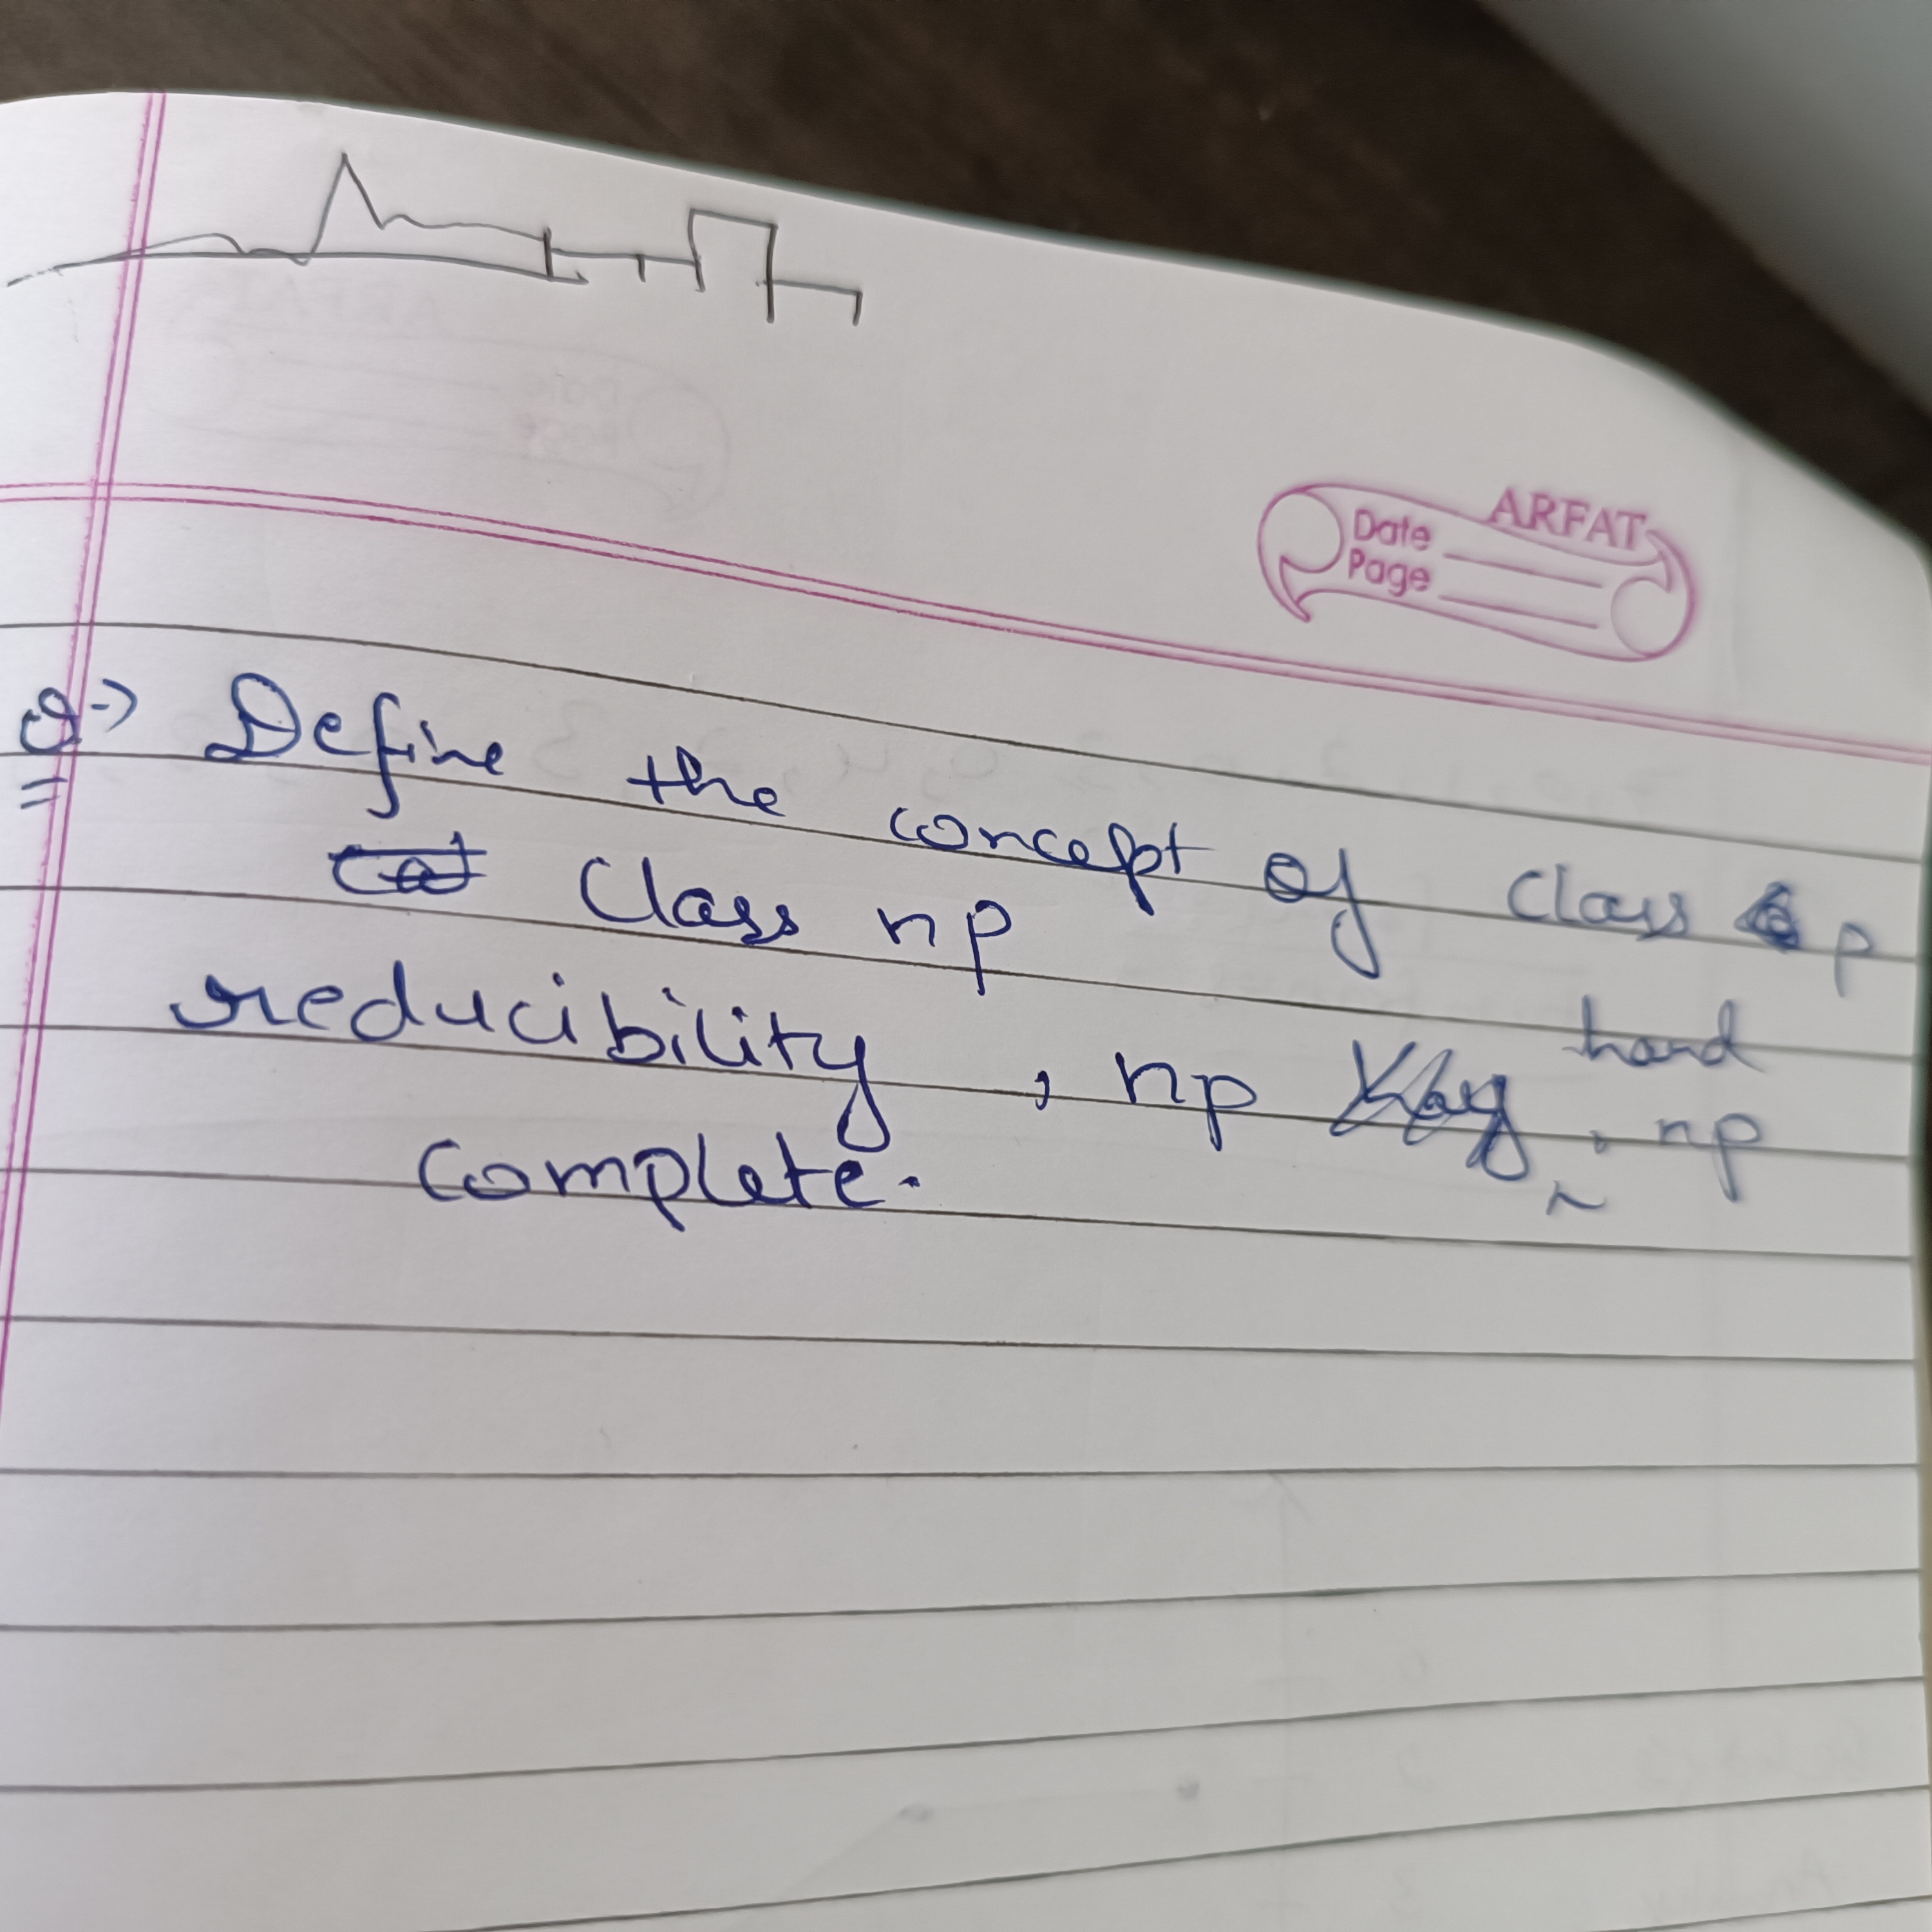 ARFAT
Date
Page
Q→ Define the concept of class p
Class np
reducibility, np hard, np
complete.